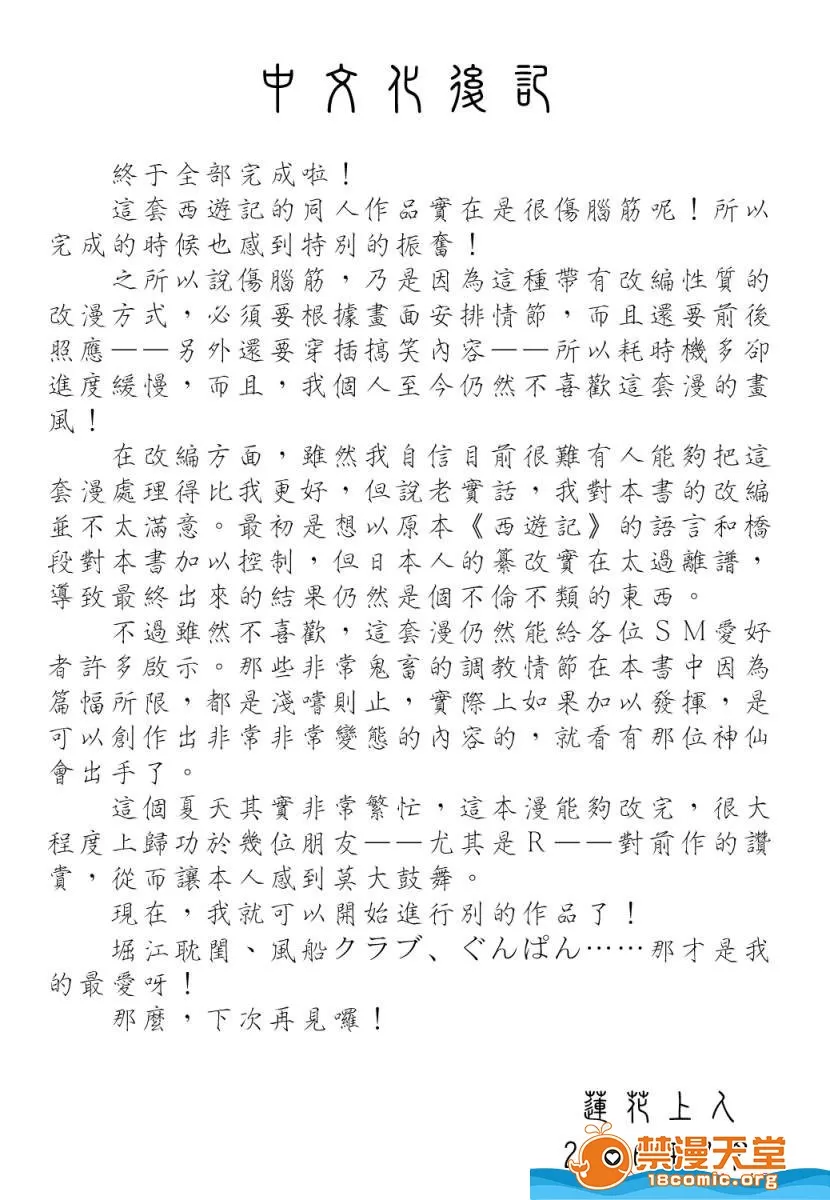 中文化後記
終于全部完成啦！
這套西遊記的同人作品實在是很傷腦筋呢！所以
完成的時候也感到特別的振奮！
之所以說傷腦筋，乃是因為這種帶有改編性質的
改漫方式，必須要根據畫面安排情節，而且還要前後
照應——另外還要穿插搞笑內容——所以耗時機多卻
進度緩慢，而且，我個人至今仍然不喜歡這套漫的畫
風！
在改編方面，雖然我自信目前很難有人能夠把這
套漫處理得比我更好，但說老實話，我對本書的改編
並不太滿意。最初是想以原本《西遊記》的語言和橋
段對本書加以控制，但日本人的纂改實在太過離譜，
導致最終出來的結果仍然是個不倫不類的東西。
不過雖然不喜歡，這套漫仍然能給各位ＳＭ愛好
者許多啟示。那些非常鬼畜的調教情節在本書中因為
篇幅所限，都是淺嚐則止，實際上如果加以發揮，是
可以創作出非常非常變態的內容的，就看有那位神仙
會出手了。
這個夏天其實非常繁忙，這本漫能夠改完，很大
程度上歸功於幾位朋友——尤其是Ｒ——對前作的讚
賞，從而讓本人感到莫大鼓舞。
現在，我就可以開始進行別的作品了！
堀江耽閨、風船クラブ、ぐんぱん……那才是我
的最愛呀！
那麼，下次再見囉！
蓮花上人
禁漫天堂
18comic.org